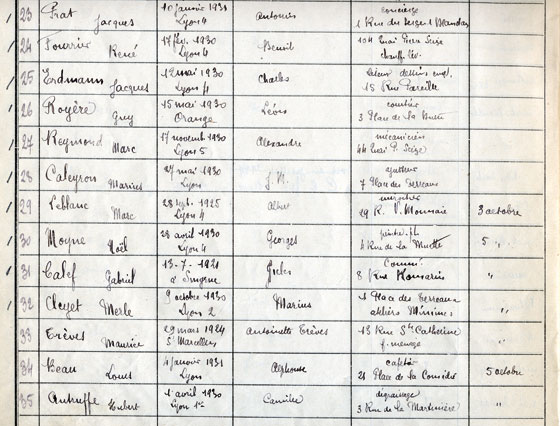 23 Prat Jacques 10 janvier 1931 Lyon 4 Antonin concierge 1 Rue du Sergent Blandan
24 Fournier René 17 fév. 1930 Lyon 4 Benoit 104 Quai Pierre Seize chauff. liv.
25 Erdmann Jacques 12 mai 1930 Lyon 4 Charles 15 Rue Pareille
26 Royère Guy 15 mai 1930 Orange Léon courtier 3 Place de la Butte
27 Reymond Marc 17 novembre 1930 Lyon 5 Alexandre mécanicien 44 Quai P. Seize
28 Caleyron Marius 27 mai 1930 Lyon J. M. ajusteur 7 Place des Terreaux
29 Leblanc Marc 28 sept. 1925 Lyon 4 Albert 29 R. V. Monnaie 3 octobre
30 Moyne Noël 28 avril 1930 Lyon 4 Georges 4 Rue de la Muette 5 "
31 Calef Gabriel 13-7-1921 à Smyrne Jules 8 Rue Romarin "
32 Cleyet Merle 9 octobre 1930 Lyon 2 Marius 1 Place des Terreaux ateliers Minimes "
33 Trèves Maurice 29 mars 1924 St Marcellin Antoinette Trèves 13 Rue Ste Catherine f. ménage "
34 Beau Louis 4 janvier 1931 Lyon Alphonse cafetier 21 Place de la Comédie 5 octobre
35 Autruffe Hubert 1 avril 1930 Lyon 1er Camille dégraissage 3 Rue de la Martinière "